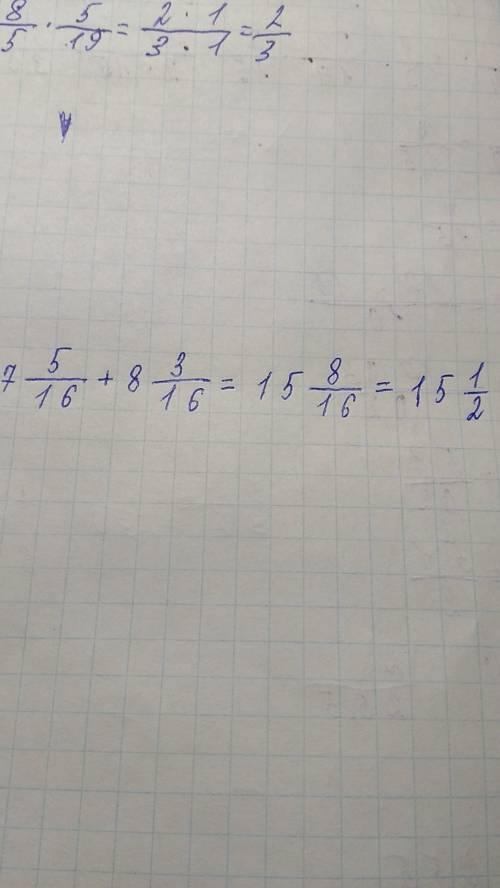 8/5 · 5/19 = 2 · 1/3 · 1 = 2/3
7 5/16 + 8 3/16 = 15 8/16 = 15 1/2